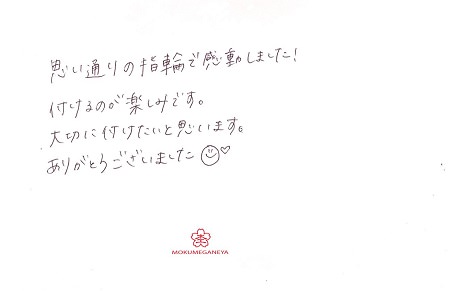 思い通りの指輪で感動しました!
付けるのが楽しみです。
大切に付けたいと思います。
ありがとうございました
MOKUMEGANEYA